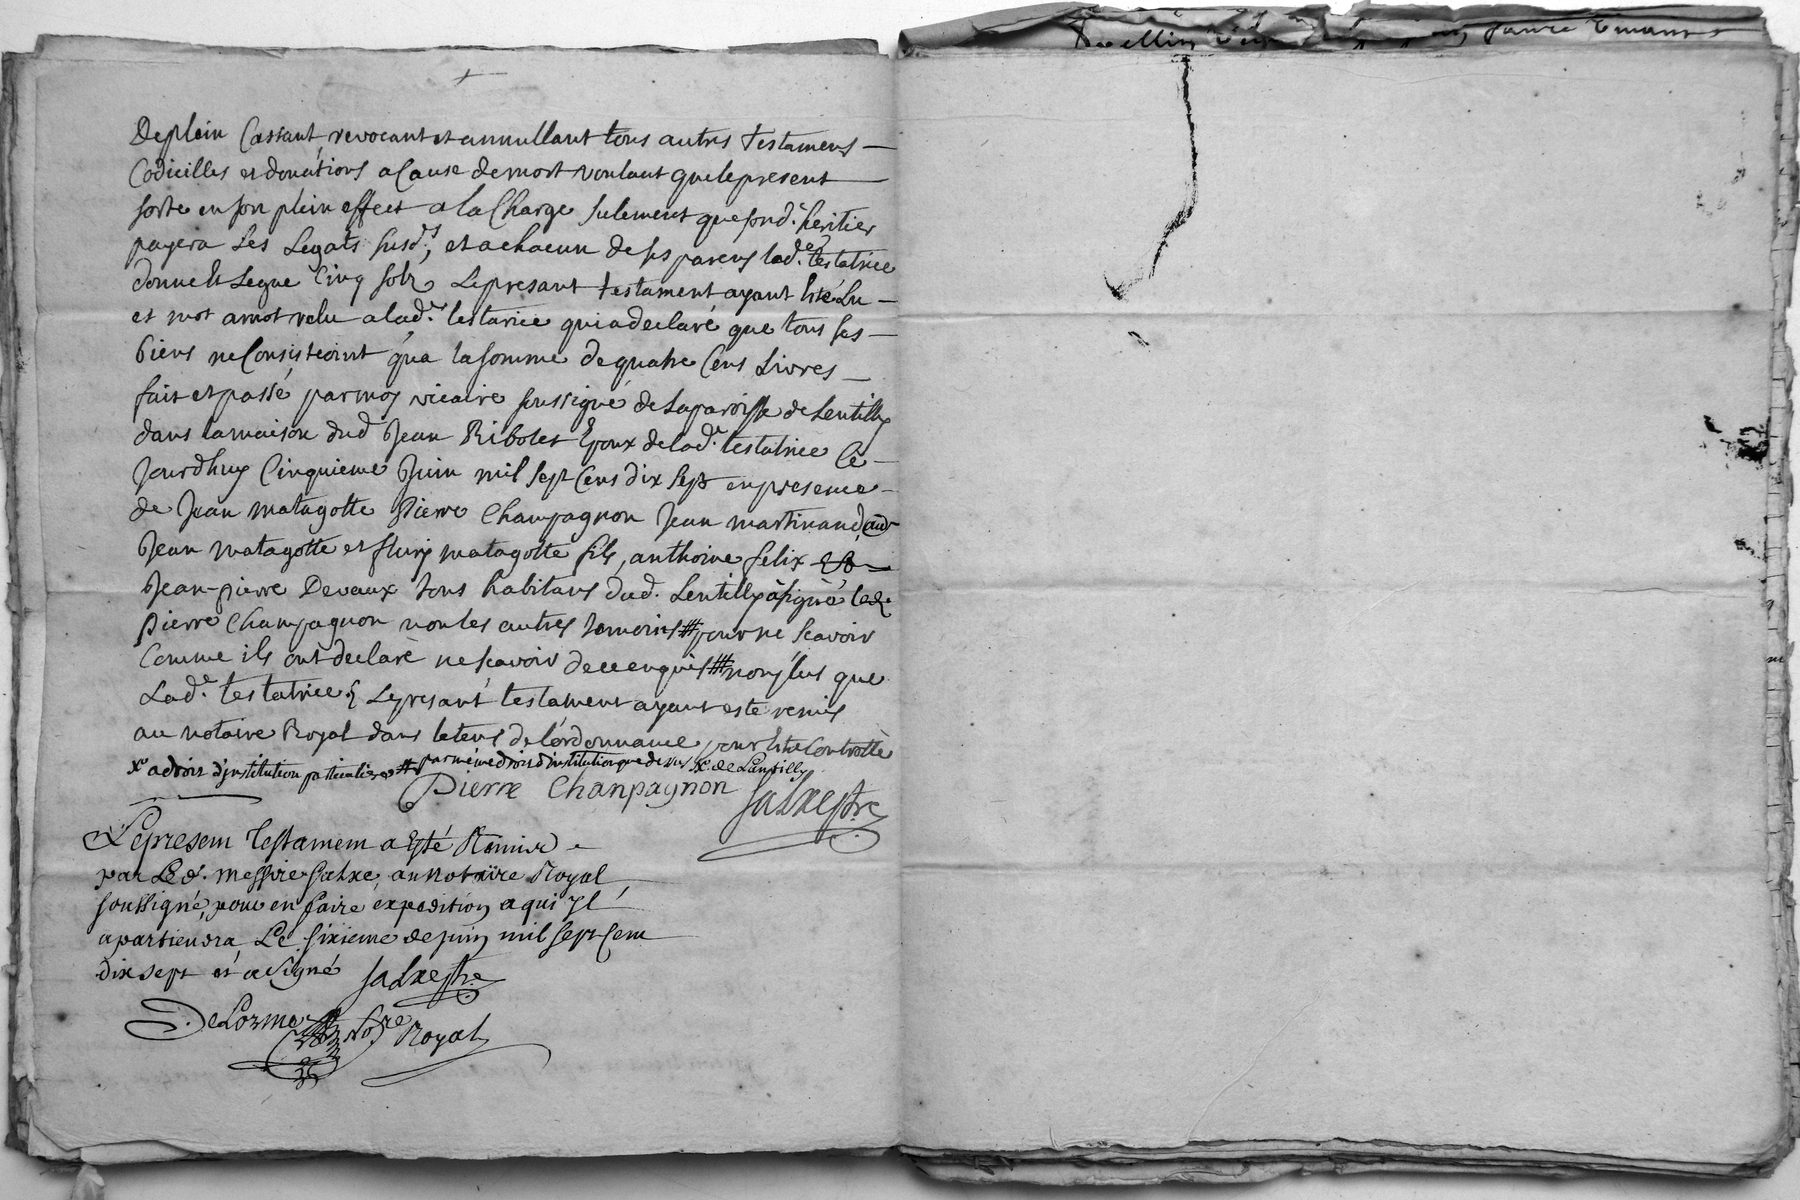 De plein Cassant, revocant et annullant tous autres testamens
Codicilles et donations a Cause de mort voulant que le present
sorte en son plein effect a la Charge sulement que sond. heritier
payera les Legats susd.s, et a chacun de ses parens lad.e testatrice
donne et Legue Cinq solz Le presant testament ayant esté Lu
et mot a mot relu a lad.e testarice qui a declaré que tous ses
biens ne Consisteoint qua la somme de quatre Cens Livres
fait et passé par moy vicaire soussigné de la paroisse de Lentilly
dans la maison dud Jean Ribolet Epoux de lad.e testatrice Ce
Jourdhuy Cinquieme Juin mil sept Cens dix sept en presence
de Jean matagotte Pierre Champagnon Jean martinand,
Jean matagotte et fleury matagotte fils, anthoine felix
Jean-pierre Devaux tous habitans dud. Lentilly à signé led.
Pierre Champagnon non les autres temoins # pour ne scavoir
Comme ils ont declarè ne scavoir de ce enquis # non plus que
Lad.e testatrice Le presant testament ayant este remis
au notaire Royal dans le tens de l'ordonnance pour estre Controllè
a droit d'institution particuliere # par méme droit d'institution que dessus de Lantilly
Pierre Chanpagnon Salvestre
Le presem testamem a Esté Remis
par Led. messire Salve, au notaire Royal
soussigné, pour en faire éxpedition a qui Jl
apartiendra, Le sixieme de juin mil sept Cem
dix sept et a signé Salvestre
DeLorme No.re Royal